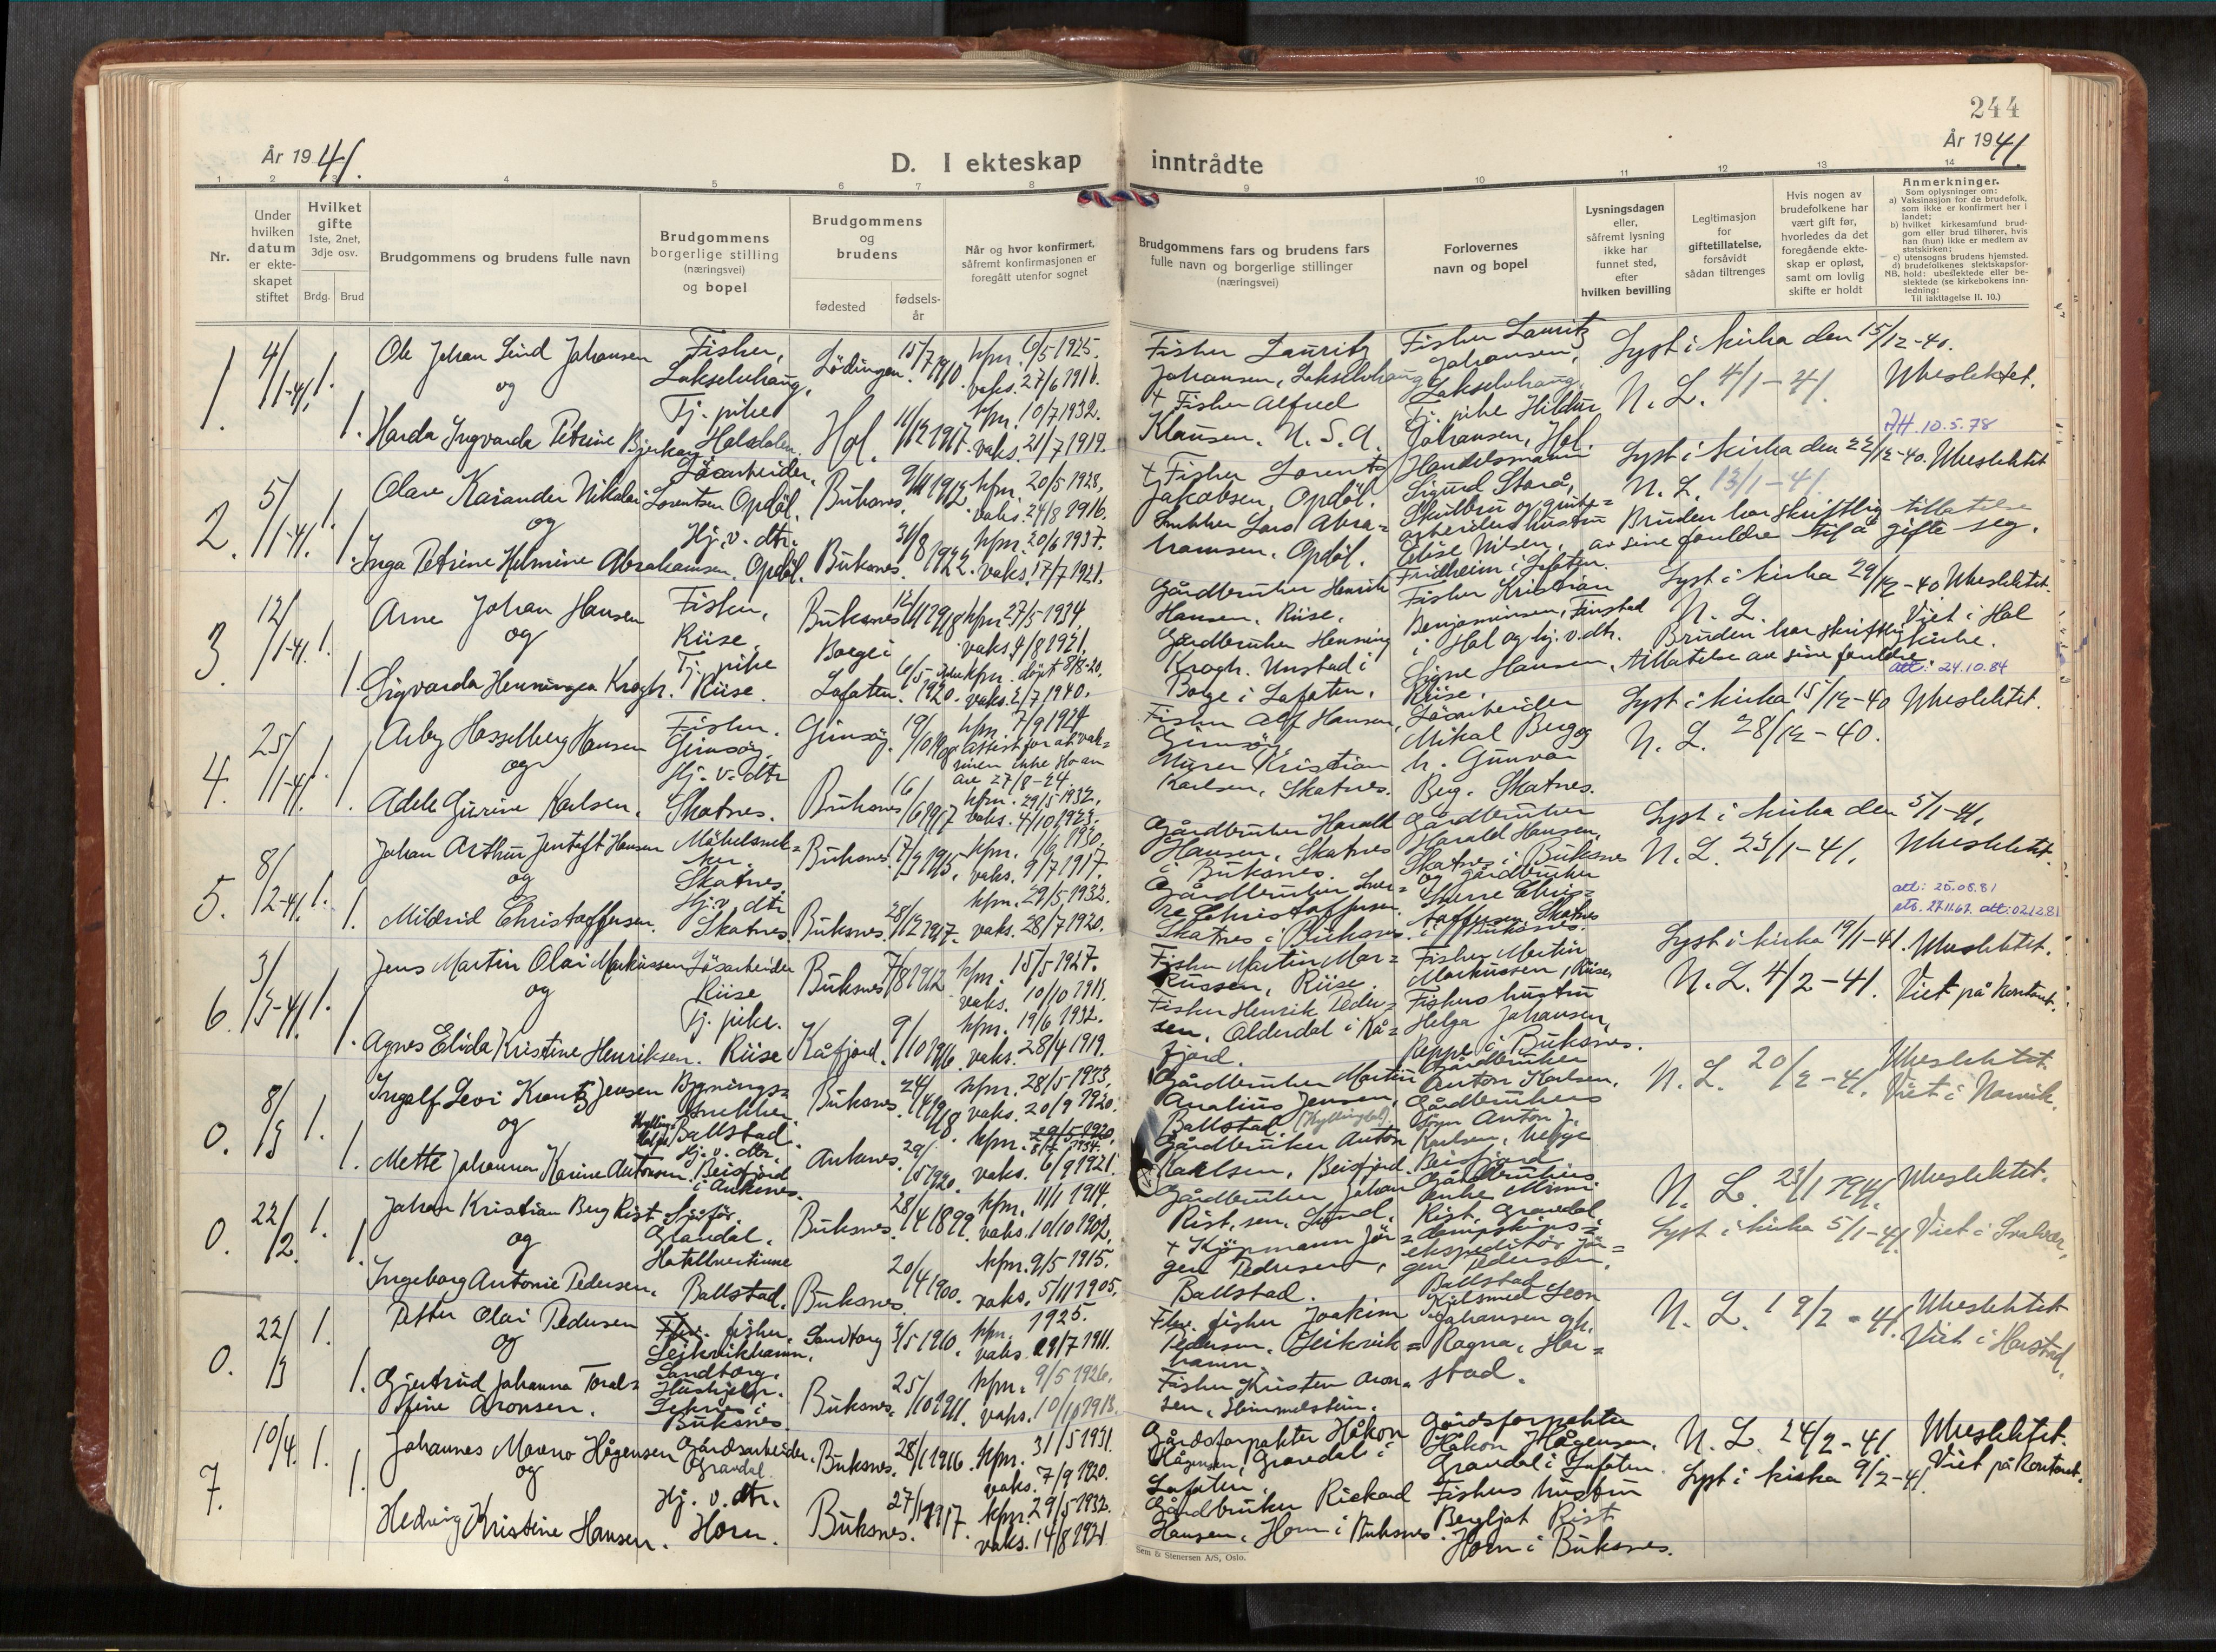 244
År 1941.
År 1941.
D. I ekteskap inntrådte
1 2 3 4 5 6 7 8 9 10 11 12 13 14
Nr.
Under hvilken datum er ekte- skapet stiftet
Hvilket gifte 1ste, 2net, 3dje osv.
Brdg. Brud
Brudgommens og brudens fulle navn
Brudgommens borgerlige stilling (næringsvei) og bopel
Brudgommens og brudens
fødested
fødsels- år
Når og hvor konfirmert, såfremt konfirmasjonen er foregått utenfor sognet
Brudgommens fars og brudens fars fulle navn og borgerlige stillinger (næringsvei)
Forlovernes navn og bopel
Lysningsdagen eller, såfremt lysning ikke har funnet sted, efter hvilken bevilling
Legitimasjon for giftetillatelse, forsåvidt sådan tiltrenges
Hvis nogen av brudefolkene har vært gift før, hvorledes da det foregående ekte- skap er opløst, samt om lovlig skifte er holdt
Anmerkninger.
Som oplysninger om:
a) Vaksinasjon for de brudefolk, som ikke er konfirmert her i landet;
b) hvilket kirkesamfund brud- gom eller brud tilhører, hvis han (hun) ikke er medlem av statskirken;
c) utensogns brudens hjemsted.
d) brudefolkenes slektskapsfor- hold: ubeslektede eller be- slektede (se kirkebokens inn- ledning:
NB. Til iakttagelse II. 10.)
1. 4/1-41. 1. 1.
Ole Johan Lind Johansen
og
Harda Ingvarda Petrine Bjerkan
Fisker,
Lakselvhaug,
Tj. pike
Halsdalen.
Lødingen. 15/7 1910. kfm. 6/5 1925.
vaks. 27/6 1911.
Hol. 11/12 1917. kfm. 10/7 1932.
vaks. 21/7 1919.
Fisker Lauritz
Johansen, Lakselvhaug
+ Fisker Alfred
Klausen. U.S.A.
Fisker Lauritz
Johansen,
Lakselvhaug.
Tj. pike Hildur
Johansen, Hol.
Lyst i kirka den 15/12-40.
N. L. 4/1-41.
Ubeslektet.
JH. 10.5.78
2. 5/1-41. 1. 1.
Olav Kasander Nikolai Lorentsen
og
Inga Petrine Helmine Abrahamsen.
Løsarbeider,
Opdøl.
Hj. v. dtr.
Opdøl.
Buksnes. 9/11 1912. kfm. 20/5 1928.
vaks. 24/8 1916.
Buksnes. 31/8 1922. kfm. 20/6 1937.
vaks. 17/7 1921.
+ Fisker Lorents
Jakobsen, Opdøl.
Snekker Lars Abra=
hamsen, Opdøl.
Handelsmann
Sigurd Storå,
Skulbru og grube=
arbeiders hustru
Elise Nilsen,
Fridheim i Lofoten.
Lyst i kirka den 22/12-40. Ubeslektet
N. L. 13/1-41
Bruden har skriftlig tillatelse
av sine foreldre til å gifte seg.
3. 12/1-41. 1. 1.
Arne Johan Hansen
og
Sigvarda Henningea Krogh.
Fisker,
Riise.
Tj. pike
Riise.
Buksnes 12/11 1918 kfm 27/5 1934
vaks. 4/8 1921.
Borge i
Lofoten. 6/5 1920. kfm. døpt 8/8-20.
vaks. 2/7 1940.
Gårdbruker Henrik
Hansen, Riise.
Gårdbruker Henning
Krogh. Unstad i
Borge i Lofoten.
Fisker Kristian
Benjaminsen, Finstad
i Hol og hj. v. dtr.
Signe Hansen,
Riise.
Lyst i kirka 29/12-40 Ubeslektet.
N. L. Viet i Hol
kirke.
Bruden har skriftlig
tillatelse av sine foreldre
att: 24.10.84
4. 25/1-41. 1. 1.
Arby Hasselberg Hansen
og
Adele Gurine Karlsen.
Fisker.
Gimsøy.
Hj. v. dtr
Skotnes.
Gimsøy. 19/10 1908 kfm. 7/9 1924
Attest for at vak=
sinen ikke slo an
av 27/8-24
Buksnes 16/6 1917 kfm. 29/5 1932.
vaks. 4/10 1923.
Fisker Alf Hansen,
Gimsøy.
Murer Kristian
Karlsen, Skotnes.
Løsarbeider
Mikal Berg og
h. Gunvor
Berg. Skotnes.
Lyst i kirka 15/12-40 Ubeslektet.
N. L. 28/12-40.
5. 8/2-41. 1. 1.
Johan Arthur Jentoft Hansen
og
Mildrid Christoffersen.
Møbelsnek=
ker.
Skotnes.
Hj. v. dtr
Skotnes.
Buksnes. 17/3 1915. kfm. 1/6 1930.
vaks. 9/7 1917.
Buksnes. 28/12 1917. kfm. 29/5 1932.
vaks. 28/7 1920.
Gårdbruker Harald
Hansen, Skotnes
i Buksnes.
Gårdbruker Sver=
re Christoffersen.
Skotnes i Buksnes.
Gårdbruker
Harald Hansen,
Skotnes i Buksnes
og gårdbruker
Sverre Chris=
toffersen, Skotnes
i Buksnes.
Lyst i kirka den 5/1-41.
N. L. 23/1-41. Ubeslektet.
att: 25.08.81
atts. 27.11.67. att: 021281
6. 3/3-41. 1. 1.
Jens Martin Olai Markussen
og
Agnes Elida Kristine Henriksen.
Løsarbeider
Riise
Tj. pike.
Riise
Buksnes 7/8 1912 kfm. 15/5 1927.
vaks. 10/10 1913.
Kåfjord. 9/10 1916. kfm. 19/6 1932.
vaks. 28/4 1919.
Fisker Martin Mar=
kussen, Riise.
Fisker Henrik Peder=
sen, Olderdal i Kå=
fjord.
Fisker Martin
Markussen, Riise
Fiskers hustru
Helga Johansen,
Reppe i Buksnes.
Lyst i kirka 19/1-41. Ubeslektet.
N. L. 4/2-41. Viet på kontoret.
0. 8/3 1. 1.
Ingolf Levi Krontz Jensen
og
Mette Johanna Karine Antonsen.
Bygnings=
snekker
Ballstad.
Hj. v. dtr.
Beisfjord
i Ankenes.
Buksnes. 24/4 1918 kfm. 28/5 1933.
vaks. 20/9 1920.
Ankenes. 29/5 1920. kfm. 29/5 1920.
8/7 1934.
vaks. 6/9 1921.
Gårdbruker Martin
Analius Jensen,
Ballstad (Kyllingdal)
Gårdbruker Anton
Karlsen, Beisfjord.
Gårdbruker
Anton Karlsen,
Gårdbrukers
sønn Anton J.
Karlsen, begge
Beisfjord
N. L. 20/2-41. Ubeslektet.
Viet i Narvik.
0. 22/2. 1. 1.
Johan Kristian Berg Rist
og
Ingeborg Antonie Pedersen.
Sjåfør
Gravdal.
Hotellvertinne
Ballstad.
Buksnes. 28/4 1899. kfm. 11/1 1914.
vaks. 10/10 1902.
Buksnes. 20/4 1900. kfm. 9/5 1915.
vaks. 5/11 1905.
Gårdbruker Johan
Rist, sen. Lund.
+ Kjøpmann Jør=
gen Pedersen,
Ballstad.
Gårdbrukers
enke Minni
Rist, Gravdal
dampskips=
ekspeditør Jør=
gen Pedersen,
Ballstad
N. L. 23/1 1941. Ubeslektet.
Lyst i kirka 5/1-41. Viet i Svolvær.
0. 22/3 1. 1.
Petter Olai Pedersen
og
Gjertrud Johanna Torals=
tine Aronsen.
Flv. fisker.
Leikvikhamn,
Sandtorg.
Hushjelp.
Leknes i
Buksnes
Sandtorg 3/5 1910. kfm. 1925.
vaks. 29/7 1911.
Buksnes. 25/10 1911. kfm. 9/5 1926.
vaks. 10/10 1913.
Flv. fisker Joakim
Pedersen, Leikvik=
hamn.
Fisker Kristen Aron=
sen, Himmelstein.
Kjelsmed Leon
Johansen og h.
Ragna, Har=
stad.
N. L. 19/2-41. Ubeslektet
Viet i Harstad.
7. 10/4. 1. 1.
Johannes Moreno Hågensen
og
Hedvig Kristine Hansen.
Gårdsarbeider.
Gravdal.
Hj. v. dtr.
Horn.
Buksnes. 28/1 1916. kfm. 31/5 1931.
vaks. 7/9 1920.
Buksnes. 27/1 1917. kfm. 29/5 1932.
vaks. 14/8 1921
Gårdsforpakter Håkon
Hågensen, Gravdal i
Lofoten.
Gårdbruker Rickard
Hansen, Horn i Buksnes.
Gårdsforpakter
Håkon Hågensen,
Gravdal i Lofoten.
Fiskers hustru
Bergljot Rist
Horn i Buksnes.
N. L. 24/2-41. Ubeslektet.
Lyst i kirka 9/2-41. Viet på kontoret.
Sem & Stenersen A/S, Oslo.